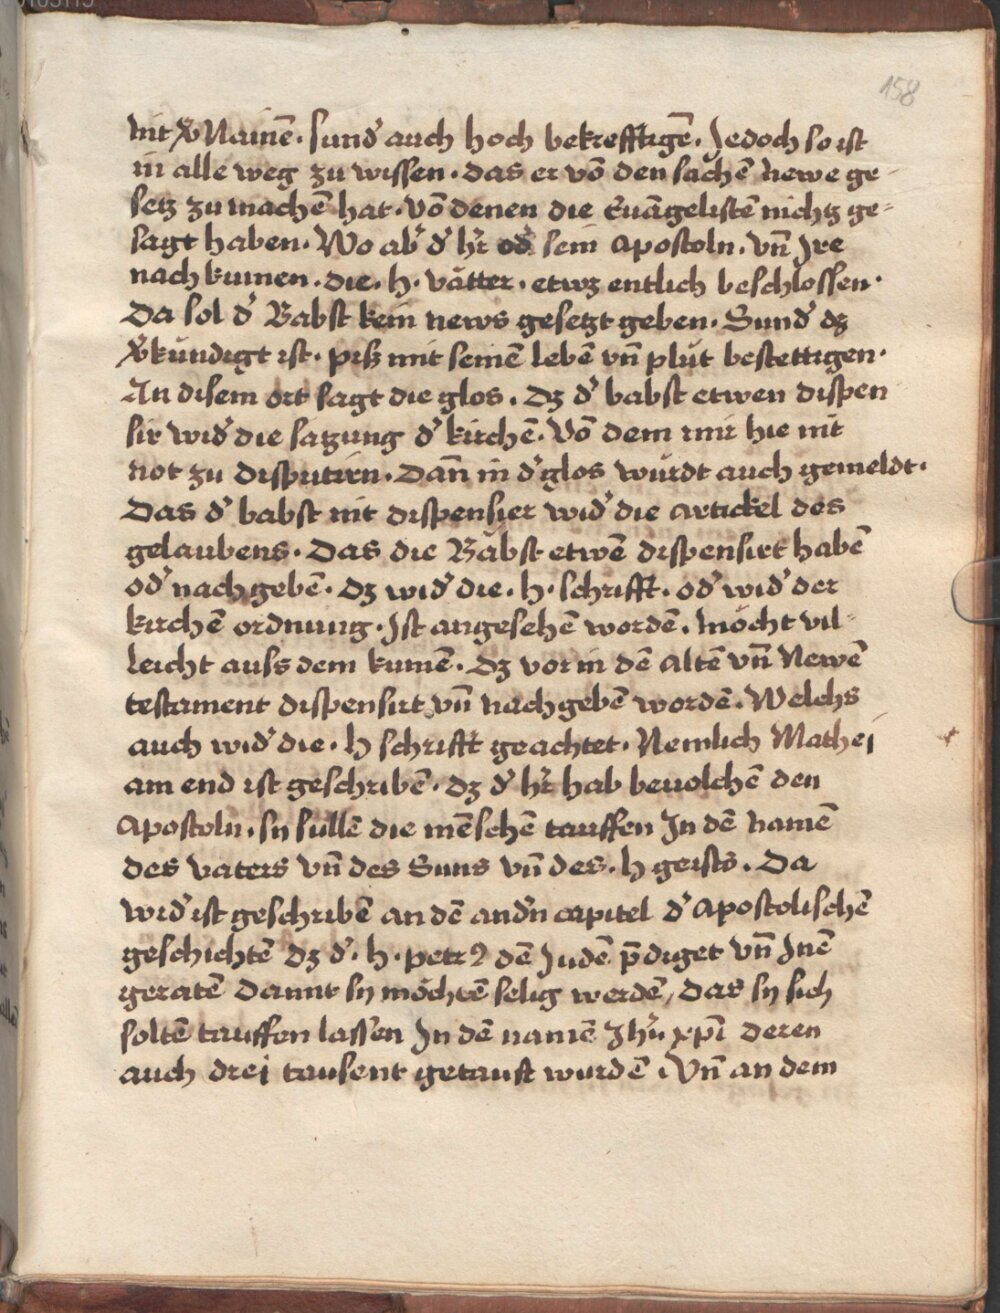 158
nit v̄Nainē. sund̾ auch hoch bekrefftigē. Jedoch so ist
in alle weg zu wissen. das er vō den sachē newe ge-
setz zu machē hat. vō denen die Euāgelistē nichtz ge-
sagt haben. Wo ab̾ d̾ hr̄ od̾ sein apostoln. vn̄ Jre
nach kumen. die. h. vätter. etwz entlich beschlossen.
Da sol d̾ Babst kein news gesetzt geben. Sund̾ dz
v̄kündigt ist. piß mit seinē lebē vn̄ plůt bestettigen.
An disem ort sagt die glos. Dz d̾ babst etwen dispen
sir wid̾ die satzung d̾ kirchē. Vō dem mir hie nit
not zu disputirn. Dañ in d̾ glos würdt auch gemeldt.
Das d̾ babst nit dispensier wid̾ die artickel des
gelaubens. Das die Bäbst etwē dispensirt habē
od̾ nach gebē. dz wid̾ die. h. schrifft. od̾ wid̾ der
kirchē ordnung. Jst angesehē wordē. möcht vil-
leicht auss dem kumē. dz vor in dē altē vn̄ Newē
testament dispensirt vn̄ nachgebē wordē. Welchs
auch wid̾ die. h schrifft geachtet. Nemlich Mathej
am end ist geschribē. dz d̾ hr̄ hab beuolchē den
apostoln. sy sullē die mēschē tauffen Jn dē namē
des vaters vn̄ des Suns vn̄ des. h geists. Da
wid̾ ist geschribē an dē and̾n capitel d̾ apostolischē
geschichtē dz d̾. h. petrꝰ dē Judē p̄diget vn̄ Jnē
geratē damit sy möchtē selig werdē, das sy sich
soltē tauffen lassen Jn dē namē Jhū xp̄i deren
auch drej tausent getauft wurdē. Vn̄ an dem